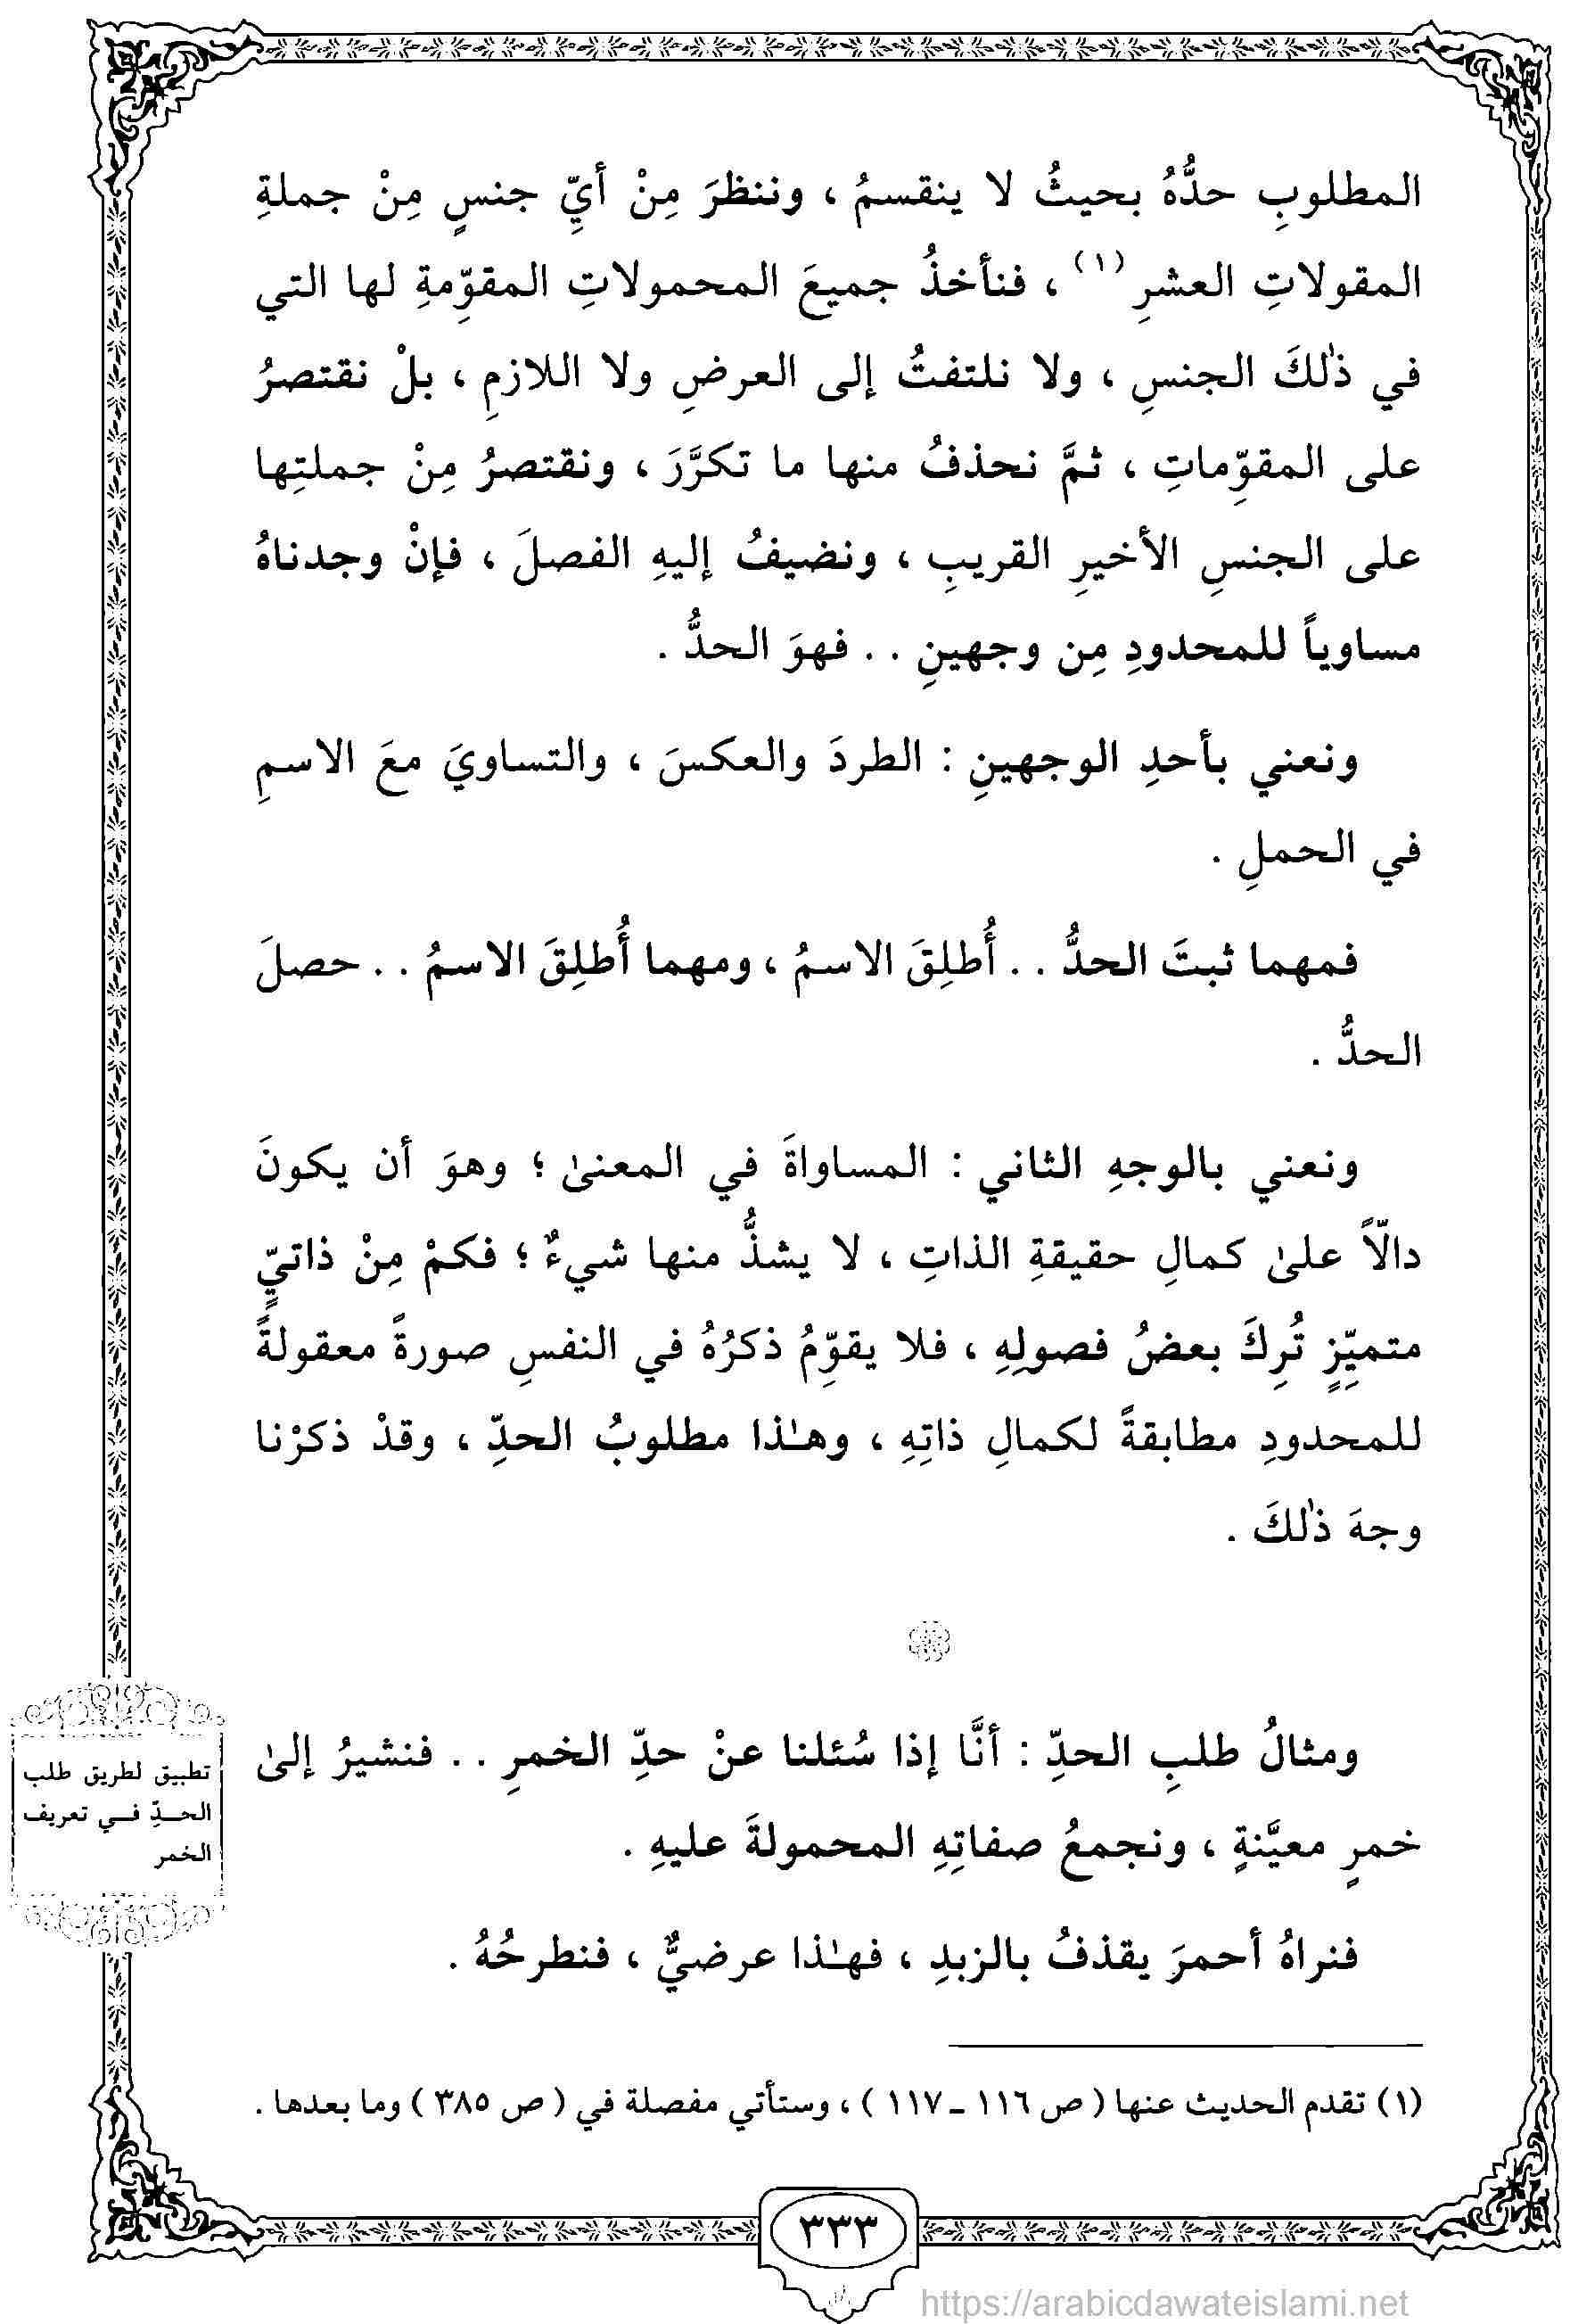 المطلوبِ حدُّهُ بحيثُ لا ينقسمُ ، وننظرَ مِنْ أيِّ جنسٍ مِنْ جملةِ
المقولاتِ العشرِ (١) ، فنأخذُ جميعَ المحمولاتِ المقوِّمةِ لها التي
في ذٰلكَ الجنسِ ، ولا نلتفتُ إلى العرضِ ولا اللازمِ ، بلْ نقتصرُ
على المقوِّماتِ ، ثمَّ نحذفُ منها ما تكرَّرَ ، ونقتصرُ مِنْ جملتِها
على الجنسِ الأخيرِ القريبِ ، ونضيفُ إليهِ الفصلَ ، فإنْ وجدناهُ
مساوياً للمحدودِ مِن وجهينِ . . فهوَ الحدُّ .
ونعني بأحدِ الوجهينِ : الطردَ والعكسَ ، والتساويَ معَ الاسمِ
في الحملِ .
فمهما ثبتَ الحدُّ . . أُطلِقَ الاسمُ ، ومهما أُطلِقَ الاسمُ . . حصلَ
الحدُّ .
ونعني بالوجهِ الثاني : المساواةَ في المعنىٰ ؛ وهوَ أن يكونَ
دالّاً علىٰ كمالِ حقيقةِ الذاتِ ، لا يشذُّ منها شيءٌ ؛ فكمْ مِنْ ذاتيٍّ
متميِّزٍ تُرِكَ بعضُ فصولِهِ ، فلا يقوِّمُ ذكرُهُ في النفسِ صورةً معقولةً
للمحدودِ مطابقةً لكمالِ ذاتِهِ ، وهـٰذا مطلوبُ الحدِّ ، وقدْ ذكرْنا
وجهَ ذٰلكَ .
ومثالُ طلبِ الحدِّ : أنَّا إذا سُئلنا عنْ حدِّ الخمرِ . . فنشيرُ إلىٰ
خمرٍ معيَّنةٍ ، ونجمعُ صفاتِهِ المحمولةَ عليهِ .
تطبيق لطريق طلب
الحـدِّ فـي تعريف
الخمر
فنراهُ أحمرَ يقذفُ بالزبدِ ، فهـٰذا عرضيٌّ ، فنطرحُهُ .
(١) تقدم الحديث عنها ( ص ١١٦ - ١١٧ ) ، وستأتي مفصلة في ( ص ٣٨٥ ) وما بعدها .
٣٣٣
https://arabicdawateislami.net